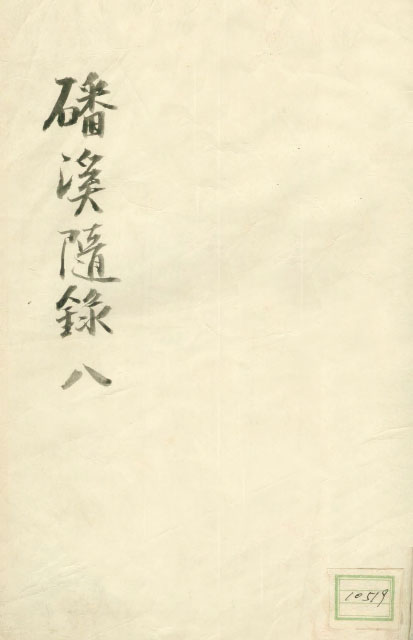 磻溪隨錄 八
10519